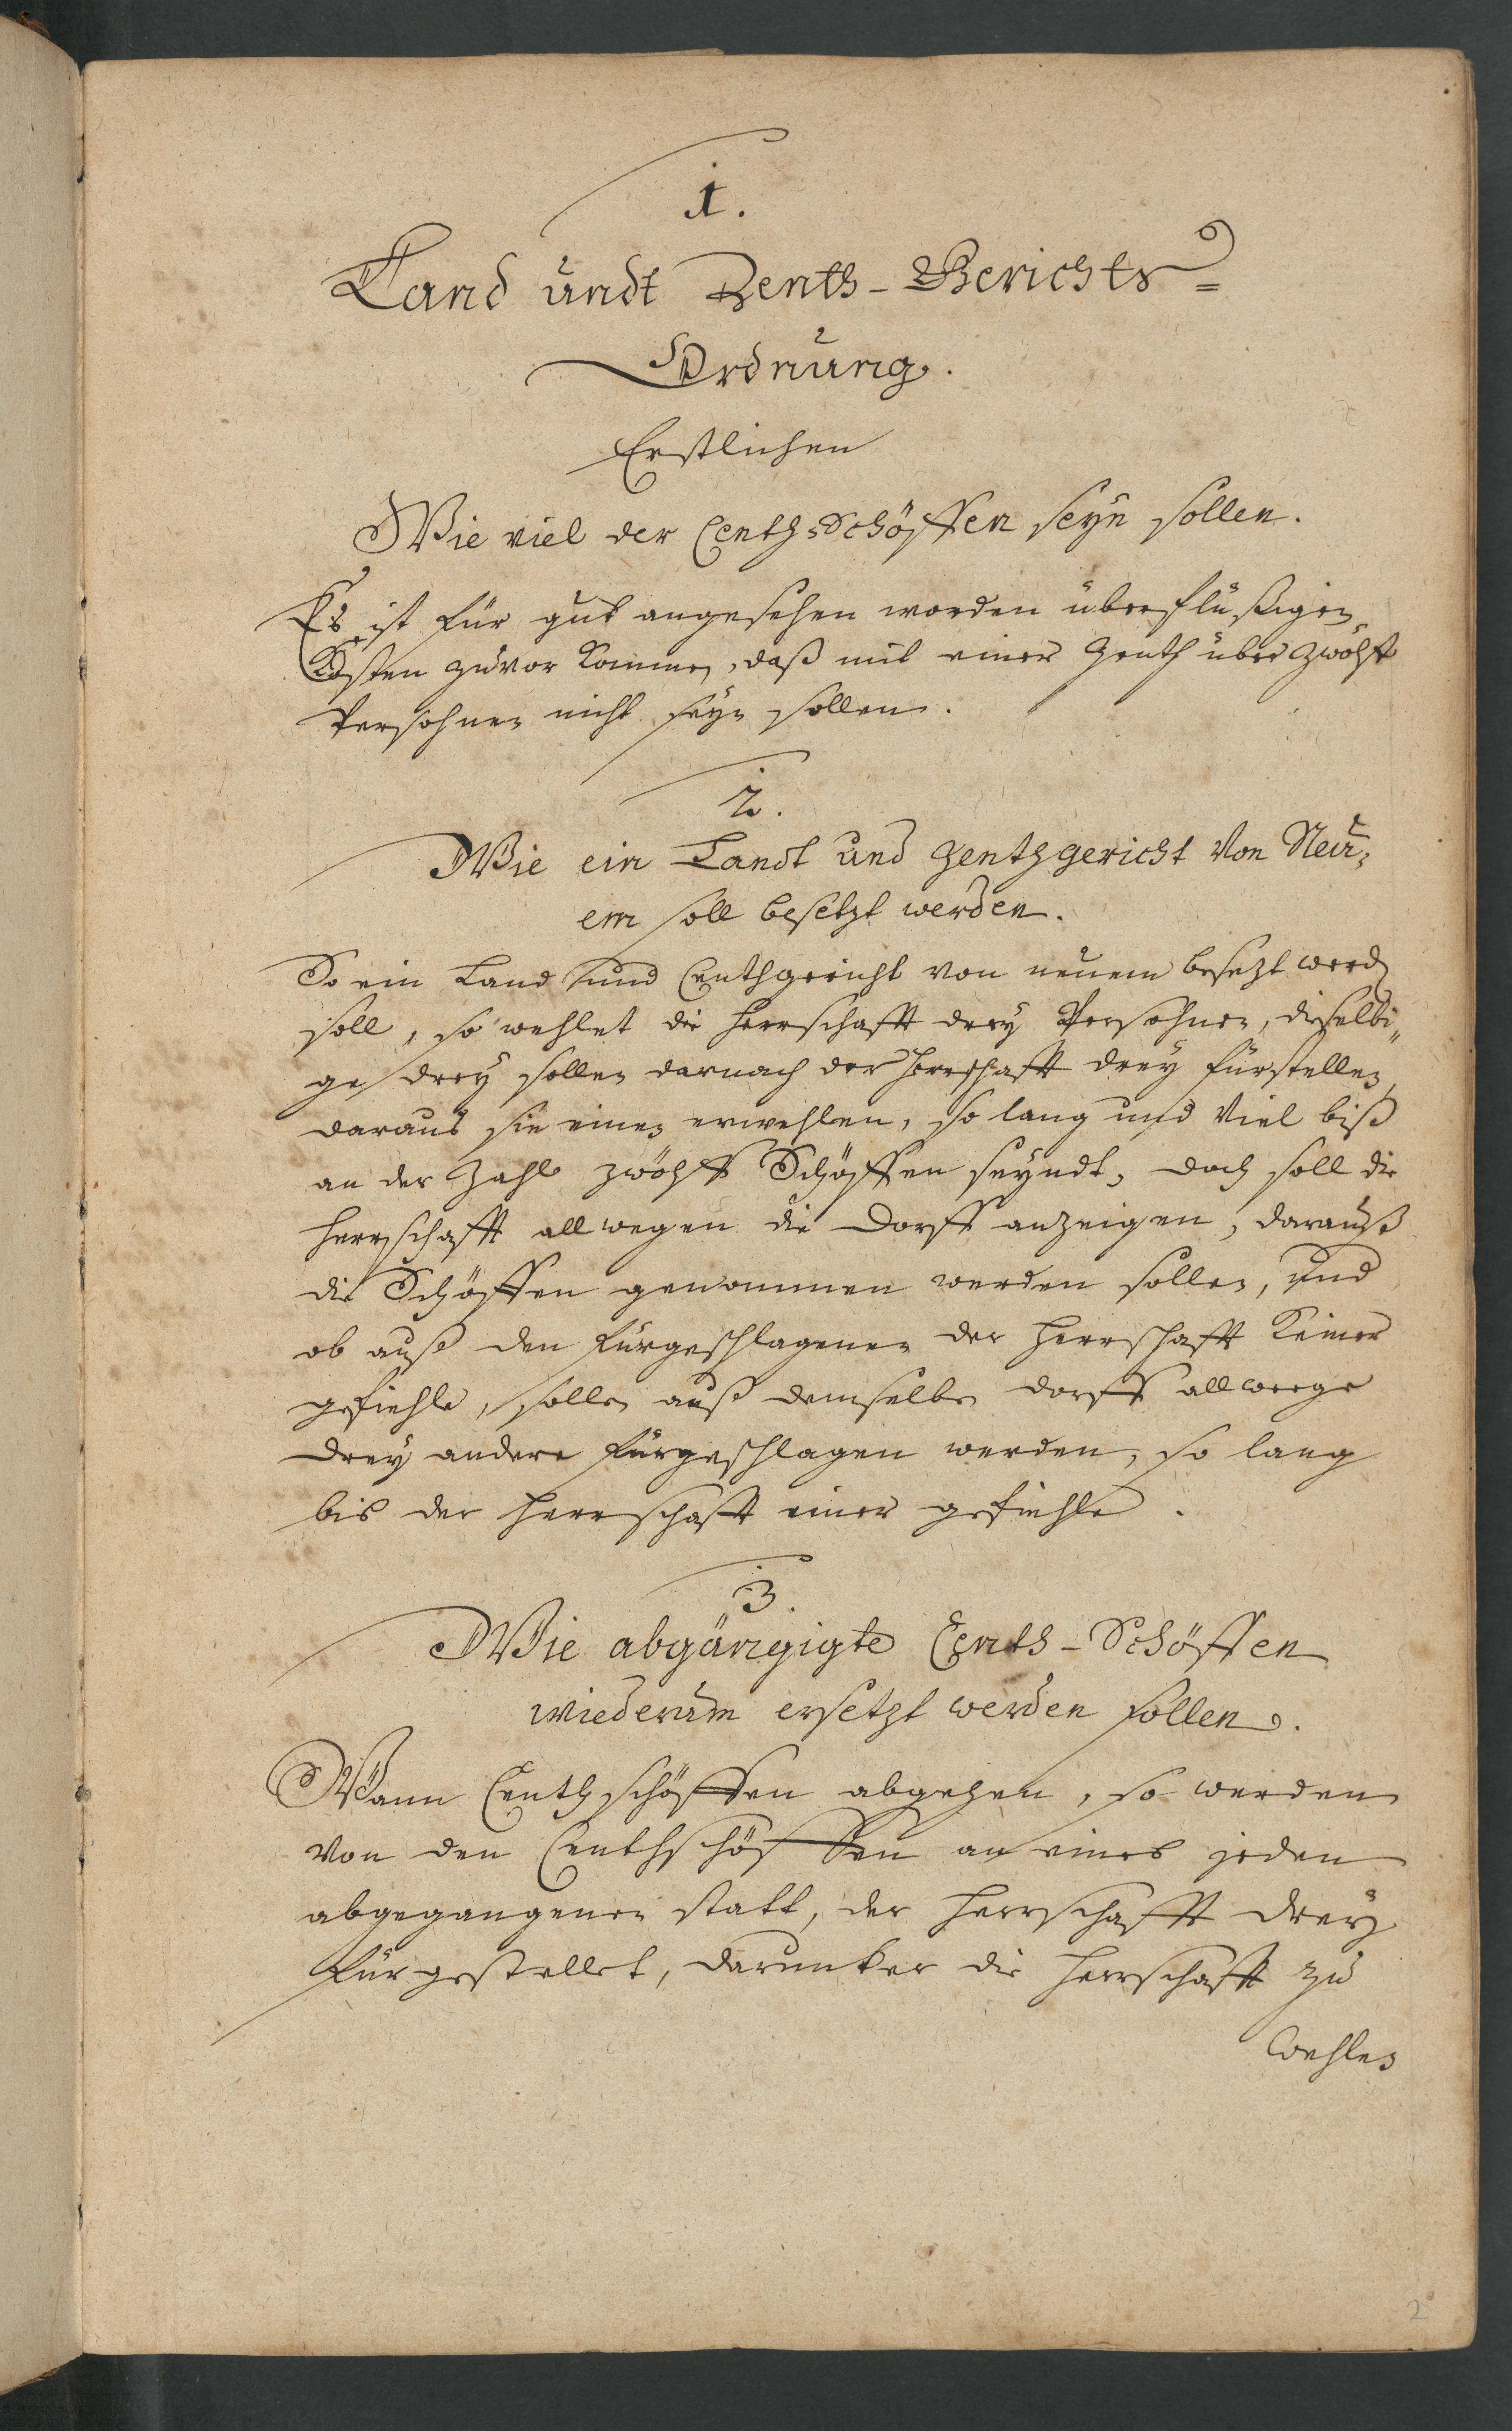 1.
Land undt Zenth-Gerichts=
Ordnung.
Erstlichen
Wie viel der Centh-Schöffen seyn sollen.
Es ist für gut angesehen worden überflüßigen
Kosten zuvor kommen, daß mit einer Zenth über zwölff
Persohnen nicht seyn sollen.
2.
Wie ein Landt und Zenthgericht Von Neu-
em soll besetzt werden.
So ein Land und Centhgericht von neuem besezt werd
soll, so wehlet die Herrschafft drey Persohnen, dieselbi„
ge drey sollen darnach der Herrschafft drey fürstellen,
daraus sie einen erwehlen, so lang und Viel biß
an der Zahl zwölff Schöffen seyndt, doch soll die
Herrschafft allwegen die Dorff anzeigen, darauß
die Schöffen genommen werden sollen, und
ob auß den fürgeschlagenen der Herrschafft keiner
gefiehle, sollen auß demselben dorff allweege
drey andere fürgeschlagen werden, so lang
bis der Herrschafft einer gefiehle.
3.
Wie abgängigte Centh-Schöffen
wiederum ersetzt werden sollen.
Wann Centhschöffen abgehen, so werden
Von den Centhschöffen an eines jeden
abgegangenen statt, der Herrschafft drey
fürgestellet, darunter die Herrschafft zu
wehlen
2